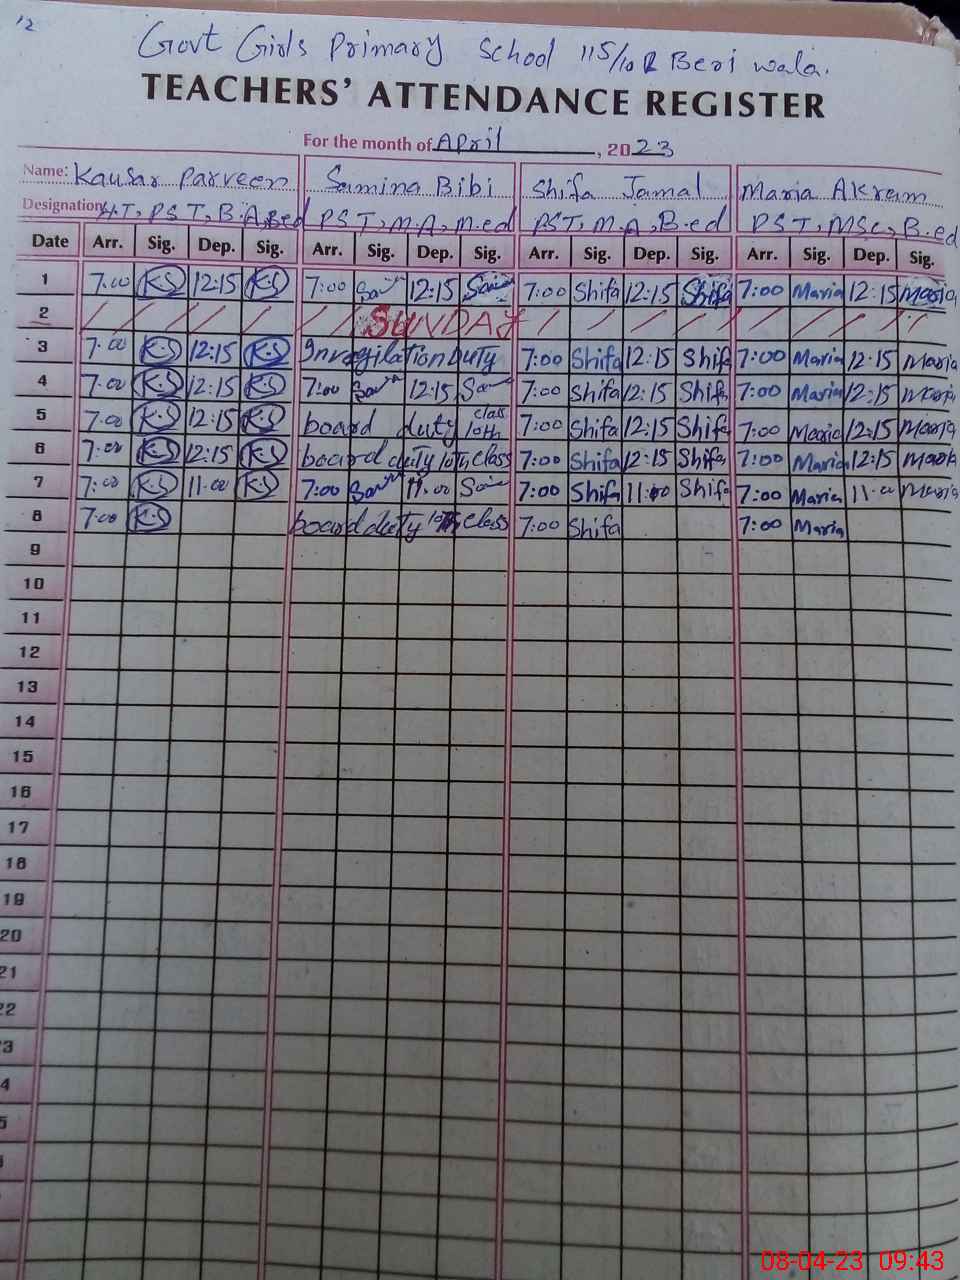 12
Govt Girls Primary School 115/10R Beri wala.
TEACHERS' ATTENDANCE REGISTER
For the month of April, 2023
Name: Kausar Parveen Samina Bibi Shifa Jamal Maria Akram
Designation H.T, PST, B.A, B.ed PST, M.A, M.ed PST, M.A, B.ed PST, MSc, B.ed
Date Arr. Sig. Dep. Sig. Arr. Sig. Dep. Sig. Arr. Sig. Dep. Sig. Arr. Sig. Dep. Sig.
1 7:00 K.S 12:15 K.S 7:00 12:15 7:00 Shifa 12:15 Shifa 7:00 Maria 12:15 Maria
2 SUNDAY
3 7:00 K.S 12:15 K.S Invegilation duty 7:00 Shifa 12:15 Shifa 7:00 Maria 12:15 Maria
4 7:00 K.S 12:15 K.S 7:00 12:15 7:00 Shifa 12:15 Shifa 7:00 Maria 12:15 Maria
5 7:00 K.S 12:15 K.S board duty class 10th 7:00 Shifa 12:15 Shifa 7:00 Maria 12:15 Maria
6 7:00 K.S 12:15 K.S board duty 10th class 7:00 Shifa 12:15 Shifa 7:00 Maria 12:15 Maria
7 7:00 K.S 11:00 K.S 7:00 11:00 7:00 Shifa 11:00 Shifa 7:00 Maria 11:00 Maria
8 7:00 K.S board duty 10th class 7:00 Shifa 7:00 Maria
9
10
11
12
13
14
15
16
17
18
19
20
21
22
3
4
5
08-04-23 09:43